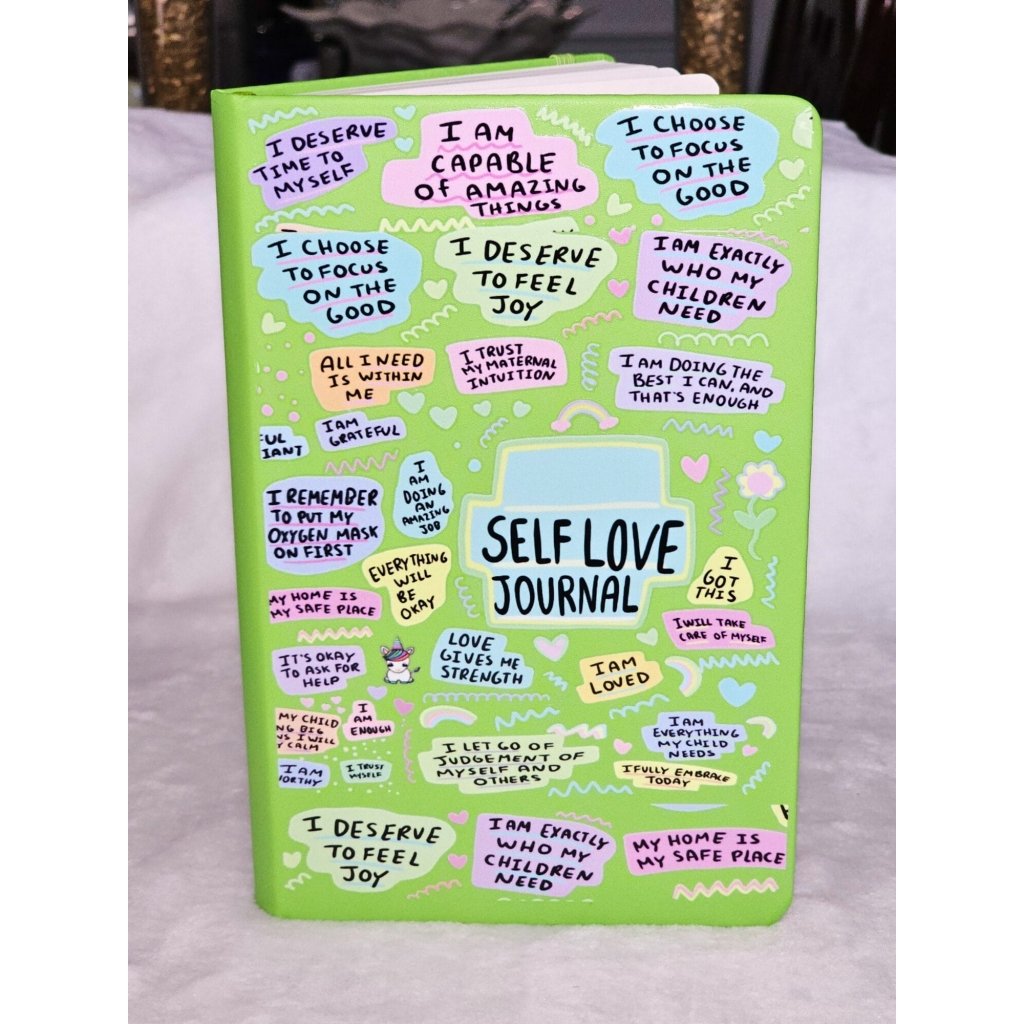 I DESERVE
TIME TO
MYSELF
I AM
CAPABLE
OF AMAZING
THINGS
I CHOOSE
TO FOCUS
ON THE
GOOD
I CHOOSE
TO FOCUS
ON THE
GOOD
I DESERVE
TO FEEL
JOY
I AM EXACTLY
WHO MY
CHILDREN
NEED
ALL I NEED
IS WITHIN
ME
I TRUST
MY MATERNAL
INTUITION
I AM DOING THE
BEST I CAN, AND
THAT'S ENOUGH
FUL
IANT
I AM
GRATEFUL
I REMEMBER
TO PUT MY
OXYGEN MASK
ON FIRST
I
AM
DOING
AN
AMAZING
JOB
SELF LOVE
JOURNAL
EVERYTHING
WILL
BE
OKAY
I
GOT
THIS
MY HOME IS
MY SAFE PLACE
I WILL TAKE
CARE OF MYSELF
IT'S OKAY
TO ASK FOR
HELP
LOVE
GIVES ME
STRENGTH
I AM
LOVED
MY CHILD
NG BIG
NS I WILL
Y CALM
I
AM
ENOUGH
I AM
EVERYTHING
MY CHILD
NEEDS
I LET GO OF
JUDGEMENT OF
MYSELF AND
OTHERS
I AM
ORTHY
I TRUST
MYSELF
I FULLY EMBRACE
TODAY
I DESERVE
TO FEEL
JOY
I AM EXACTLY
WHO MY
CHILDREN
NEED
MY HOME IS
MY SAFE PLACE